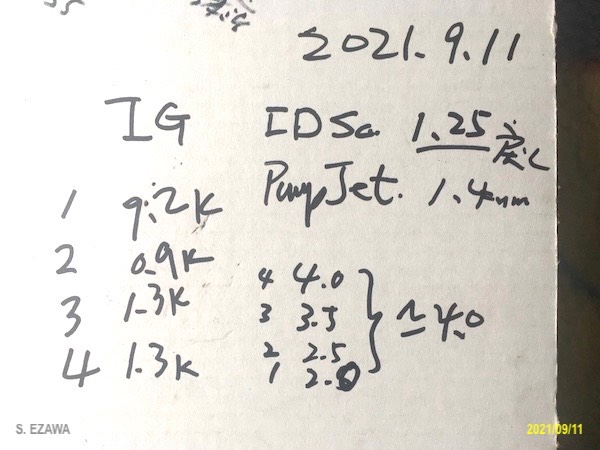 2021.9.11
IG
IDSa 1.25
Pump Jet. 1.4mm
1 9.2K
2 0.9K
3 1.3K
4 1.3K
4 4.0
3 3.5
2 2.5
1 2.0
≃4.0
S. EZAWA
2021/09/11